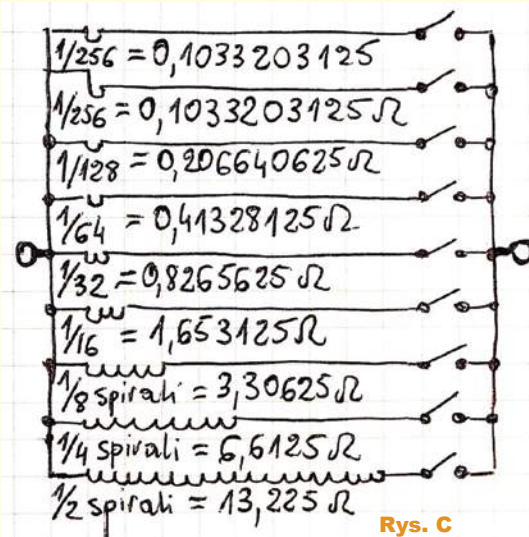 1/256 = 0,1033203125
1/256 = 0,1033203125Ω
1/128 = 0,206640625Ω
1/64 = 0,41328125Ω
1/32 = 0,8265625Ω
1/16 = 1,653125Ω
1/8 spirali = 3,30625Ω
1/4 spirali = 6,6125Ω
1/2 spirali = 13,225Ω
Rys. C